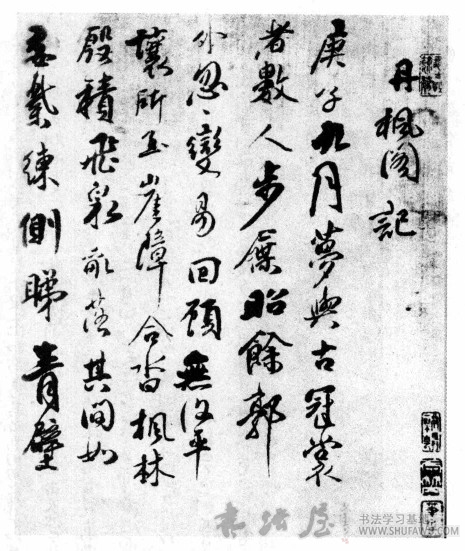 丹楓閣記
庚子九月夢與古冠裳
者數人步屧昭餘郭
外忽〻變易回顧無復平
壤所至崖障合沓楓林
殷積飛泉亂落其間如
委縈練側睇青壁
书法屋
书法学习基
WWW.SHUFAW